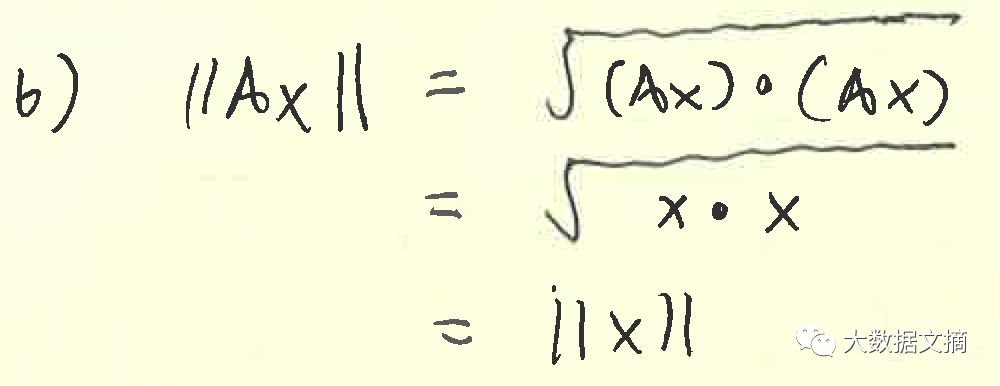 b) ||Ax|| = √(Ax)•(Ax)
= √x•x
= ||x||
大数据文摘